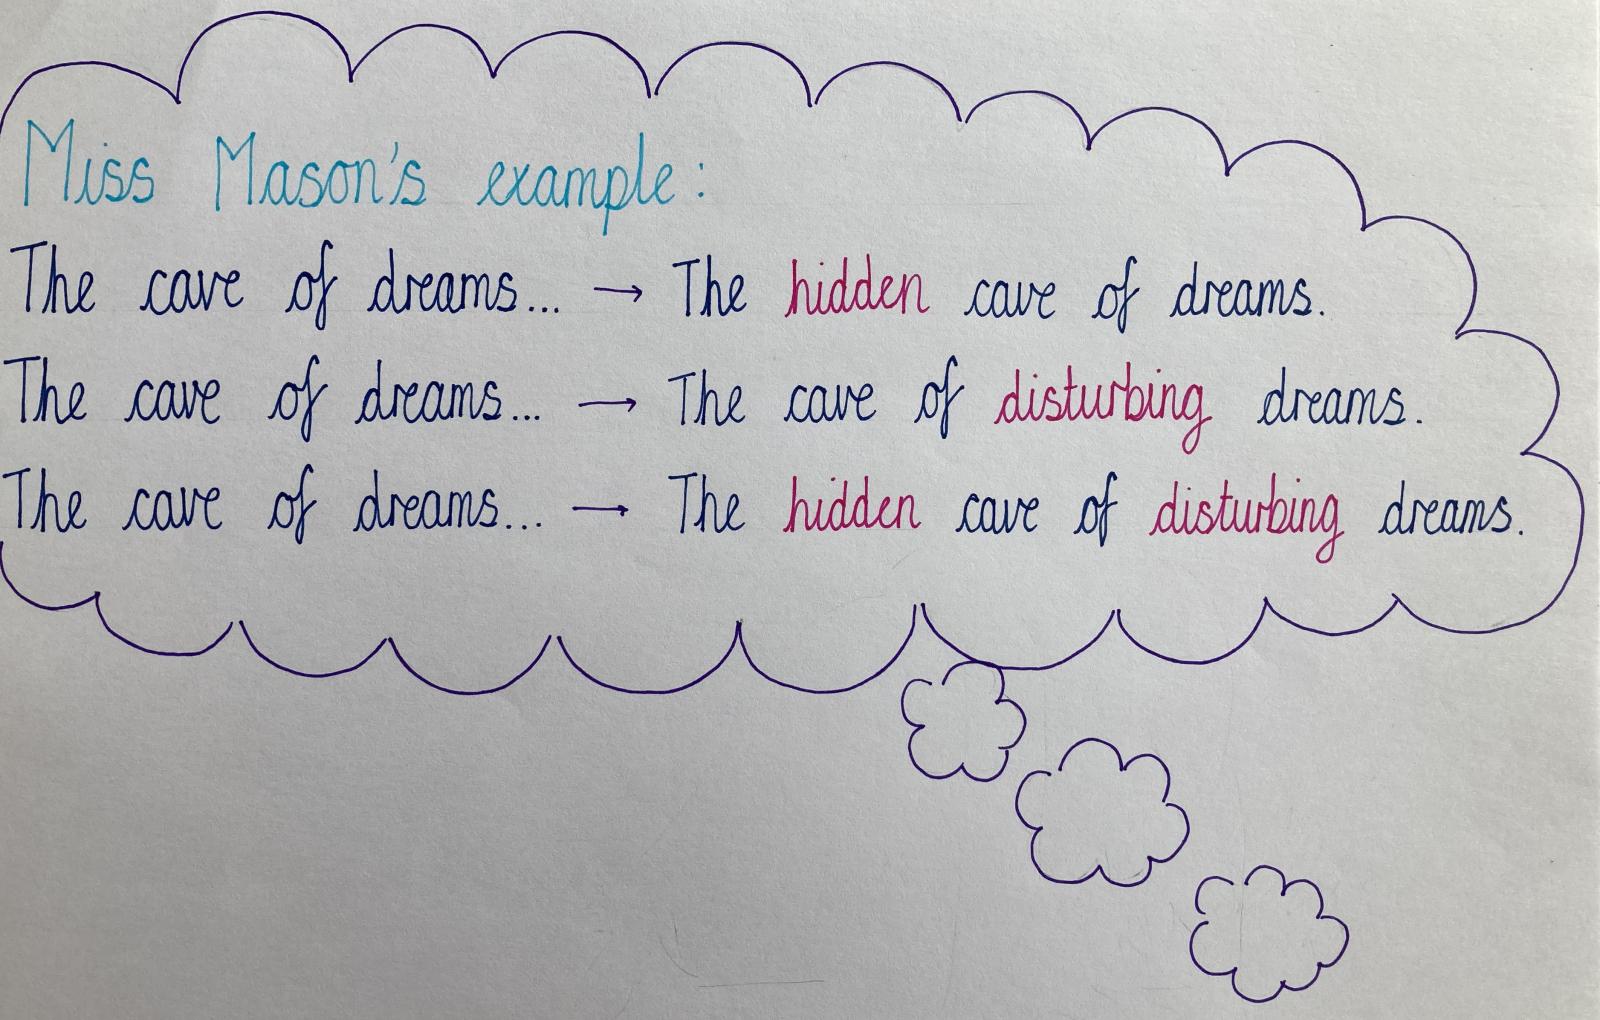 Miss Mason's example:
The cave of dreams... → The hidden cave of dreams.
The cave of dreams... → The cave of disturbing dreams.
The cave of dreams... → The hidden cave of disturbing dreams.